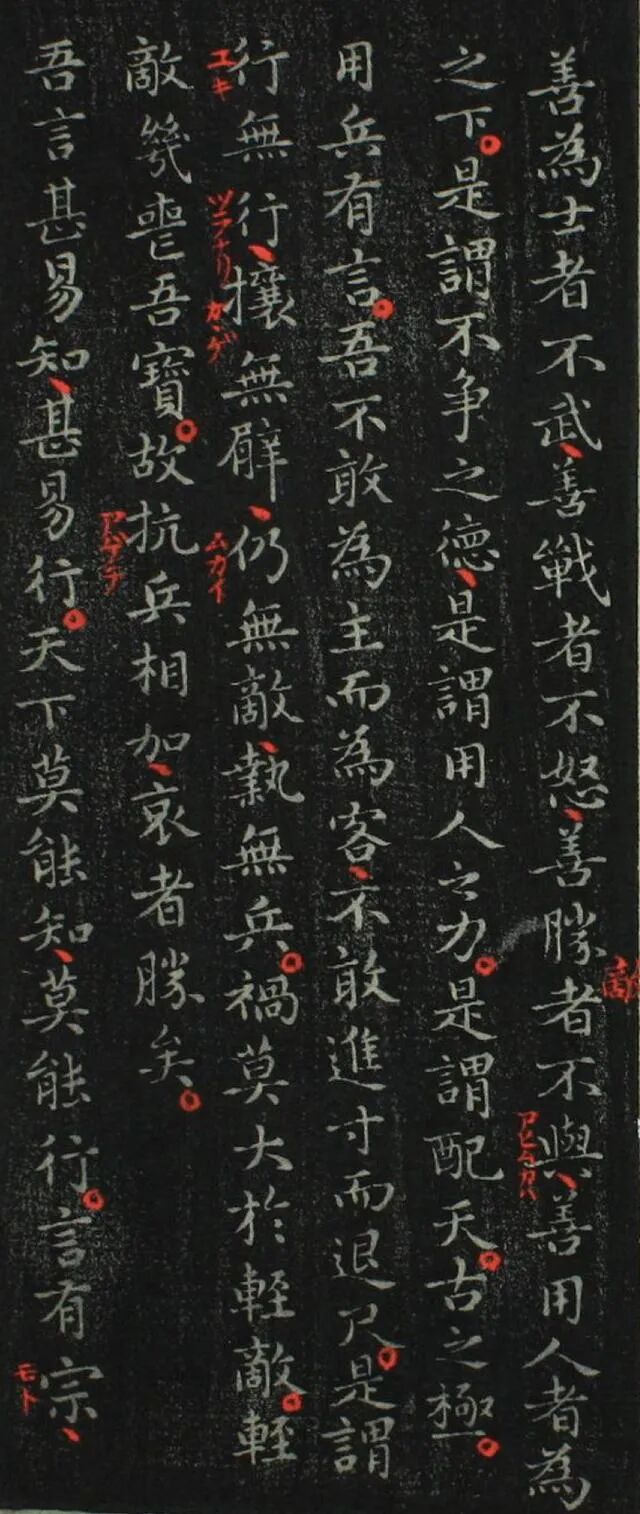 善為士者不武善戰者不怒善勝者不與善用人者為
之下是謂不爭之德是謂用人之力是謂配天古之極
用兵有言吾不敢為主而為客不敢進寸而退尺是謂
行無行攘無臂仍無敵執無兵禍莫大於輕敵輕
敵幾喪吾寶故抗兵相加哀者勝矣
吾言甚易知甚易行天下莫能知莫能行言有宗
敵
アヒムカハ
ユキ
ツラナリ
カヽゲ
ムカイ
アゲテ
モト